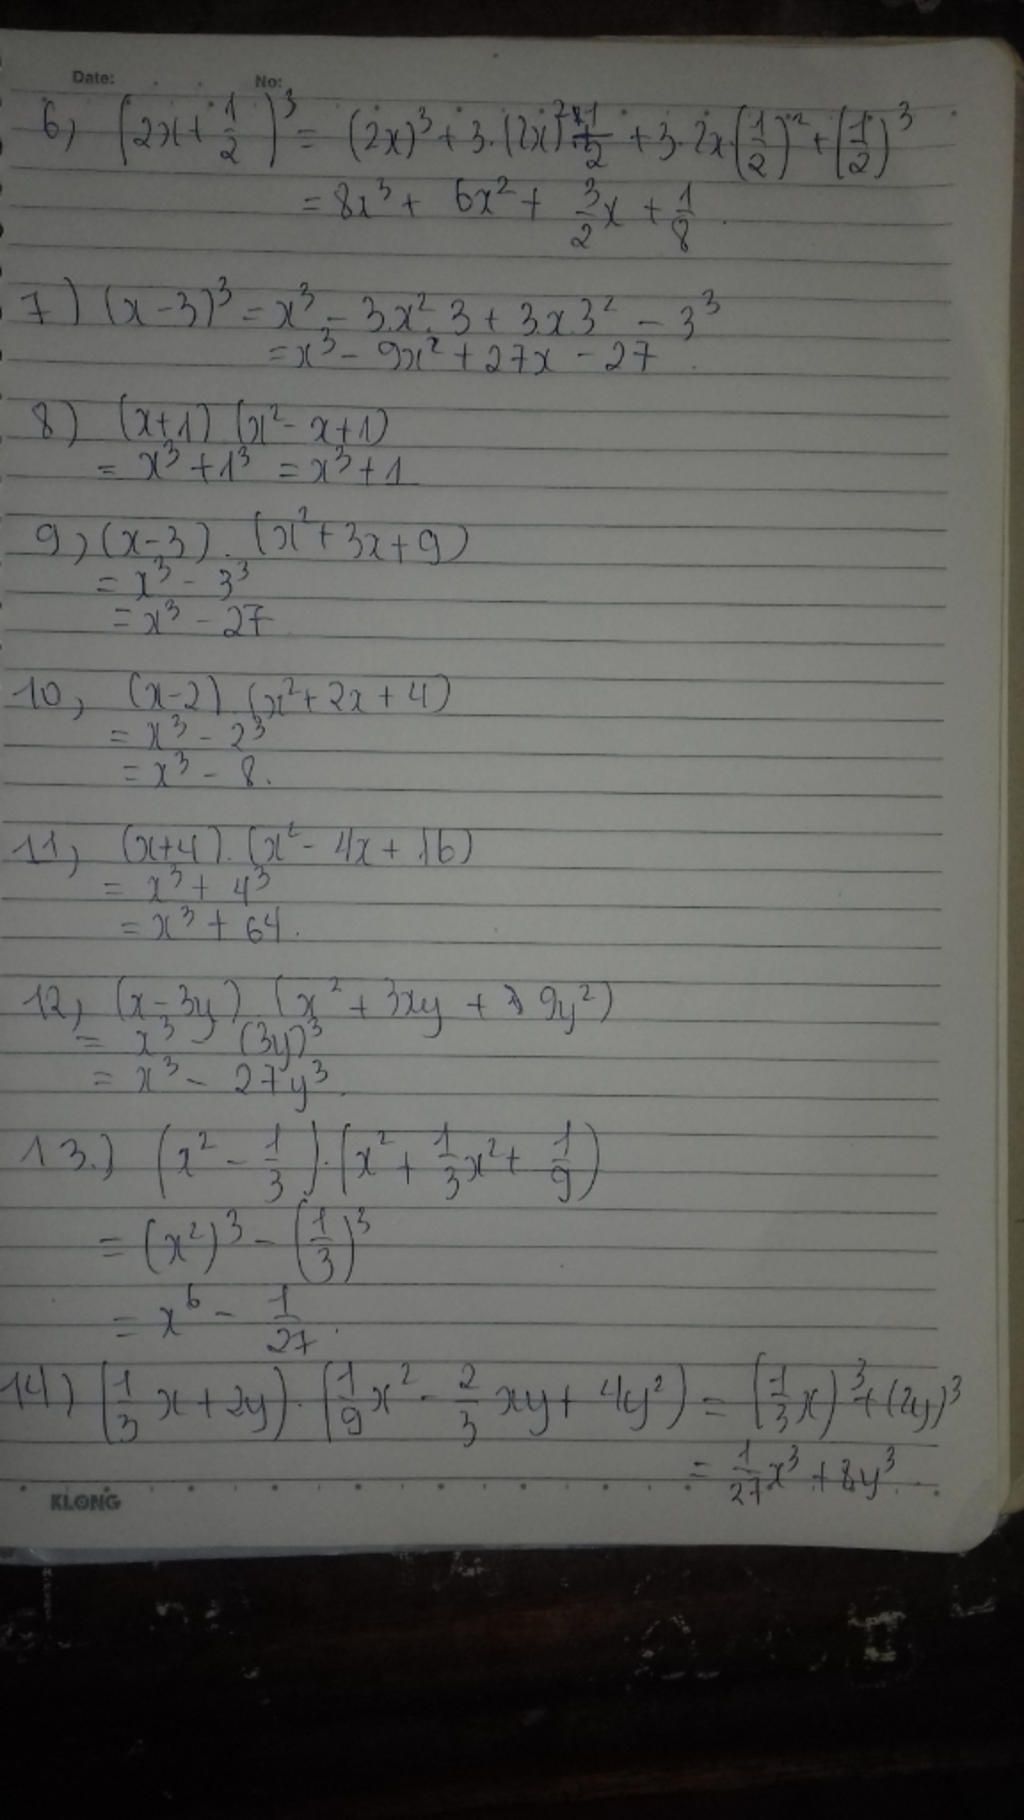 Date: No:
6, (2x + 1/2)³ = (2x)³ + 3.(2x)² . 1/2 + 3.2x.(1/2)² + (1/2)³
= 8x³ + 6x² + 3/2x + 1/8.
7) (x-3)³ = x³ - 3.x².3 + 3.x.3² - 3³
= x³ - 9x² + 27x - 27.
8) (x+1) (x² - x+1)
= x³ + 1³ = x³ + 1
9, (x-3).(x² + 3x + 9)
= x³ - 3³
= x³ - 27
10, (x-2).(x² + 2x + 4)
= x³ - 2³
= x³ - 8.
11, (x+4).(x² - 4x + 16)
= x³ + 4³
= x³ + 64.
12, (x - 3y).(x² + 3xy + 9y²)
= x³ - (3y)³
= x³ - 27y³.
13.) (x² - 1/3).(x² + 1/3x² + 1/9)
= (x²)³ - (1/3)³
= x⁶ - 1/27.
14) (1/3x + 2y).(1/9x² - 2/3xy + 4y²) = (1/3x)³ + (2y)³
= 1/27x³ + 8y³.
KLONG